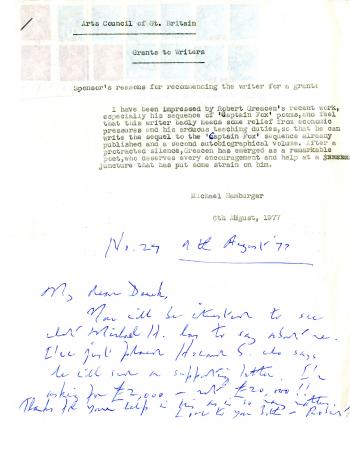 Arts Council of Gt. Britain
Grants to Writers
Sponsor's reasons for recommending the writer for a grant:
I have been impressed by Robert Grescen's recent work,
especially his sequence of 'Captain Fox' poems, and feel
that this writer badly needs some relief from economic
pressures and his arduous teaching duties, so that he can
write the sequel to the 'Captain Fox' sequence already
published and a second autobiographical volume. After a
protracted silence, Grescen has emerged as a remarkable
poet, who deserves every encouragement and help at a
juncture that has put some strain on him.
Michael Hamburger
6th August, 1977
No. 29 9th August '77
My dear
You will be interested to see
what Michael H. has to say about me.
I've just phoned S. who says
he will send a supporting letter. I'm
asking for £2,000 – not £20,000!!
Thanks for your help in
Love to you both – Robert